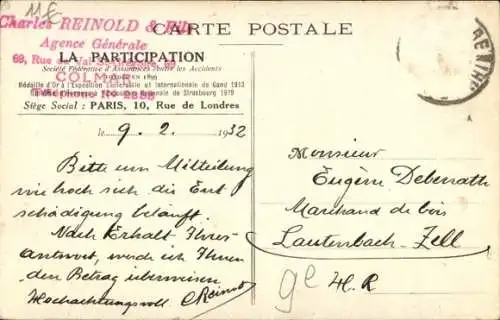 11 f
Charles REINOLD & Fils
Agence Générale
CARTE POSTALE
LA PARTICIPATION
Société Fédérative d'Assurances contre les Accidents
COLMAR
Médaille d'Or à l'Exposition Universelle et Internationale de Gand 1913
Nationale de Strasbourg 1919
Siège Social : PARIS, 10, Rue de Londres
le 9. 2. 1932
Bitte um Mitteilung
wie hoch sich die Ent
schädigung beläuft.
Nach Erhalt Ihrer
Antwort, werde ich Ihnen
den Betrag überweisen
Hochachtungsvoll CReinold
Monsieur
Eugène Debenath
Marchand de bois
Lautenbach-Zell
H. R